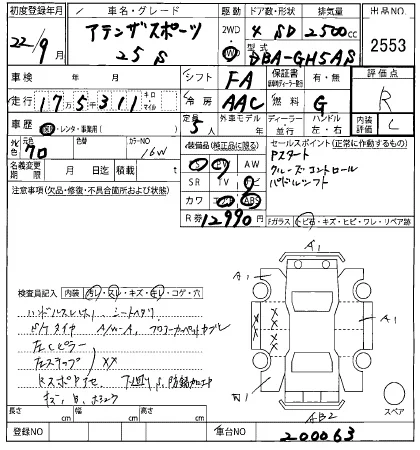 初度登録年月 車名・グレード 駆動 ドア数・形状 排気量 出品NO
22/9月 アテンザスポーツ 25S 2WD・W 4 SD 2500cc 2553
型式 DBA-GH5AS
車検 年 月 シフト FA 保証書 有・無 評価点
走行 17万5千311 キロ マイル 冷房 AAC 燃料 G R
車歴 自家・レンタ・事業用( ) 定員 5人 外車モデル 年 ディーラー 並行 ハンドル 左・右 内装評価 C
外色 元色 70 色替 カラーNO 16W
装備品(純正品に限る) PS PW AW SR TV ナビ カワ エアB ABS
セールスポイント(正常に作動するもの)
Pスタート
クルーズコントロール
パドルシフト
名義変更期限 月 日迄 積載 t
注意事項(欠品・修復・不具合箇所および状態)
R券 12990円 Fガラス トビ石・キズ・ヒビ・ワレ・リペア跡
A1
A1 A1
検査員記入 内装 ヨゴレ・スレ・キズ・キレ・コゲ・穴
ハンドルスレ シートヘタリ
タイヤ A/W-A、フロアーカーペット
左Cピラー
左ステップ XX
下廻り 防錆加工
キズ
AB2
スペア
長さ cm 幅 cm 高さ cm
登録NO 車台NO 200063